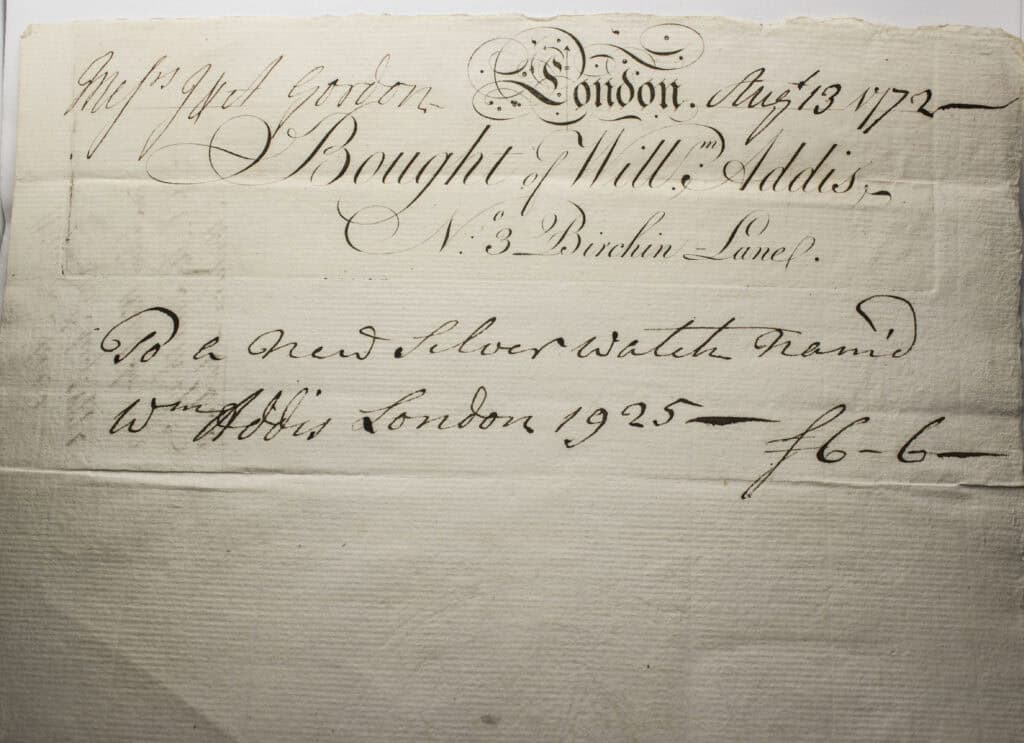 Messrs Gordon London. Augt 13 1772
Bought of Willm. Addis,
No. 3 Birchin Lane.
To a new Silver watch Nam'd
Wm Addis London 1925
£6-6-